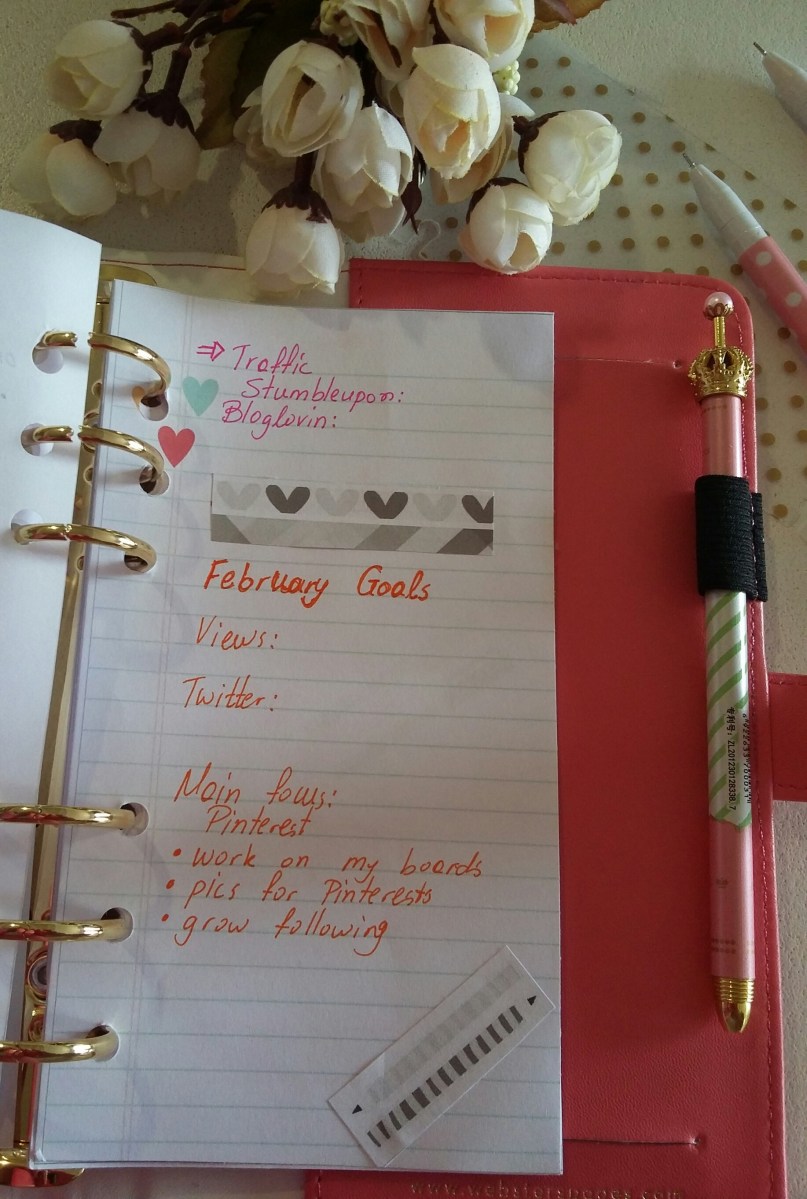 ⇒ Traffic
Stumbleupon:
Bloglovin:
February Goals
Views:
Twitter:
Main focus:
Pinterest
• work on my boards
• pics for Pinterests
• grow following
专利号: ZL201230128338.7